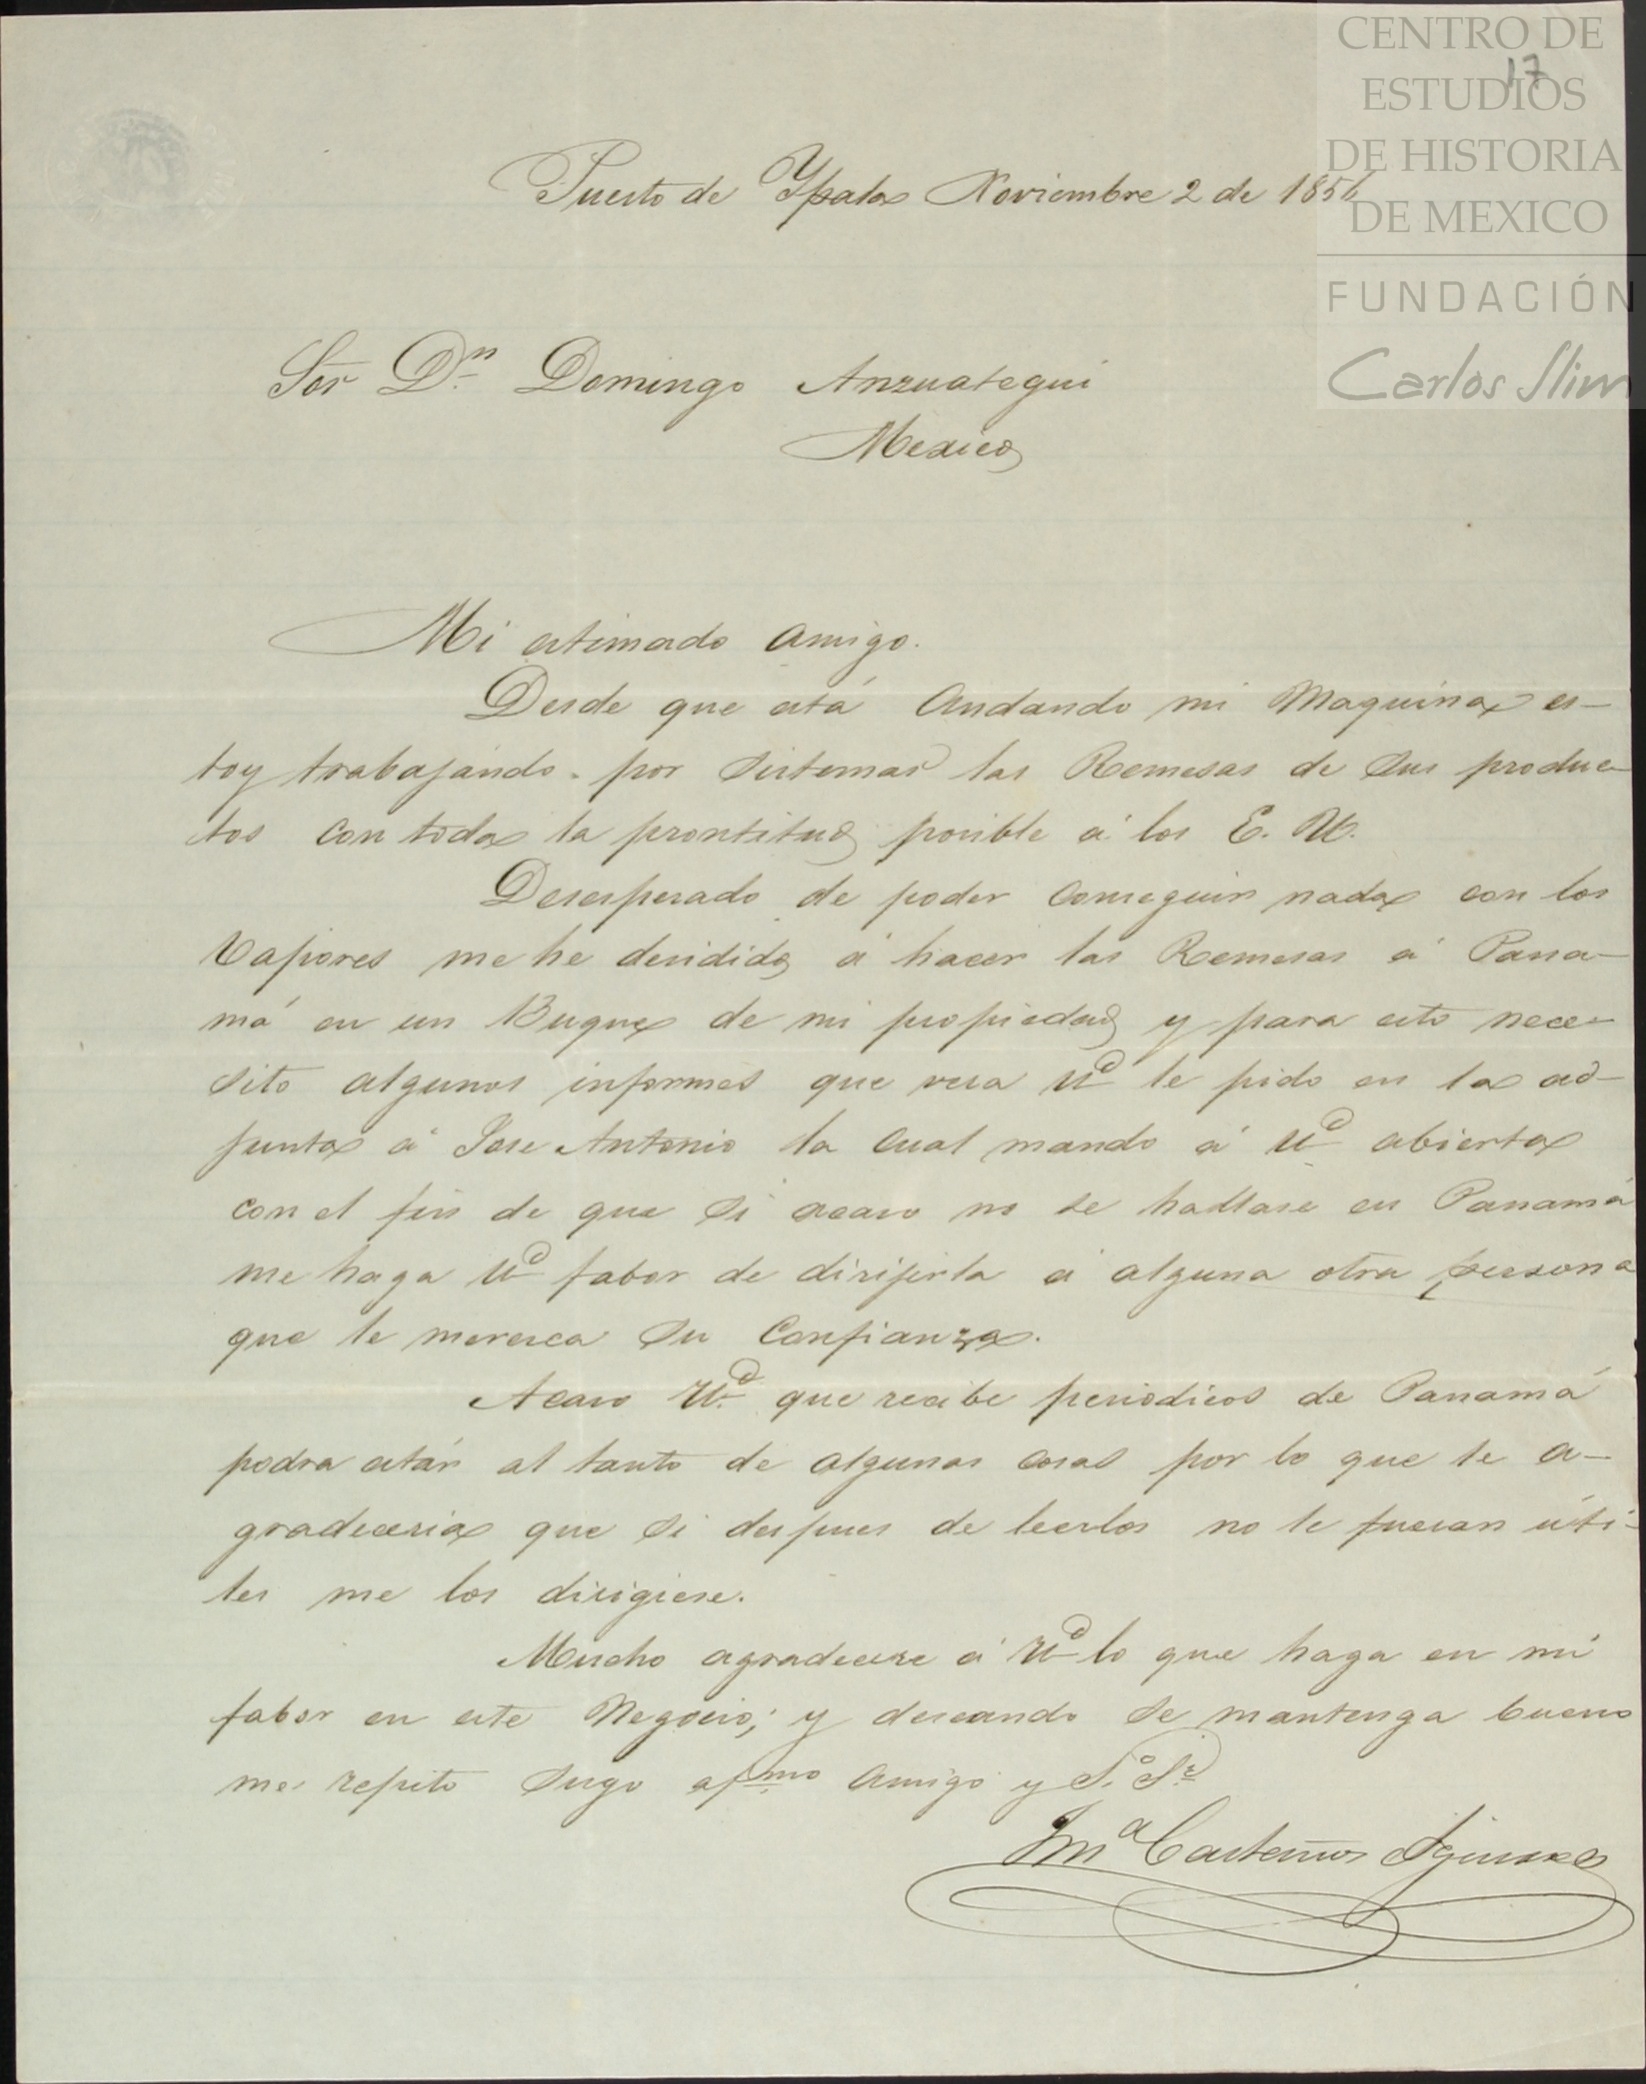 CENTRO DE
ESTUDIOS
DE HISTORIA
DE MEXICO
FUNDACIÓN
Carlos Slim
17
Puerto de Ypala Noviembre 2 de 1856
Sor Dn Domingo Anzuategui
Mexico
Mi estimado amigo.
Desde que está andando mi Maquina es-
toy trabajando por sistemar las Remesas de sus produc-
tos con toda la prontitud posible á los E. U.
Desesperado de poder conseguir nada con los
Vapores me he desidido á hacer las Remesas á Pana-
má en un Buque de mi propiedad y para esto nece-
sito algunos informes que vera Ud le pido en la ad-
junta á Jose Antonio la cual mando á Ud abierta
con el fin de que si acaso no se hallase en Panamá
me haga Ud fabor de dirijirla á alguna otra persona
que le meresca su Confianza.
Acaso Ud que recibe periodicos de Panamá
podra estár al tanto de algunas cosas por lo que le a-
gradeceria que si despues de leerlos no le fueran úti-
les me los dirigiese.
Mucho agradecere á Ud lo que haga en mi
fabor en este Negocio; y deseando se mantenga bueno
me repito suyo afmo amigo y S. S.